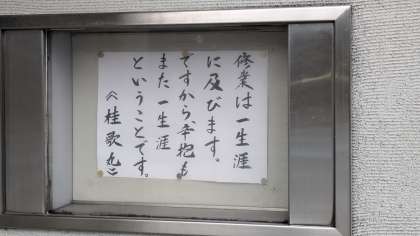 修業は一生涯
に及びます。
ですから、辛抱も
また一生涯
ということです。
《桂歌丸》